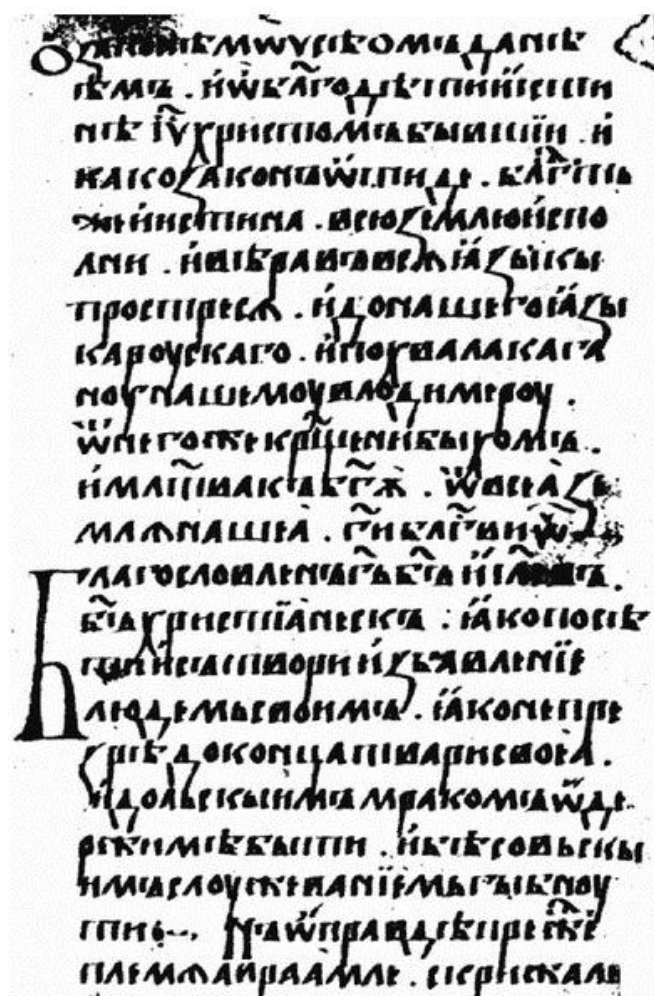 О законѣ мѡѵсѣомъ данѣ
ѣмъ . и ѡ блг҃одѣти и исти
нѣ іс҃ у христомъ бывшіи . и
како законъ ѿиде . блг҃ть
же и истина . всю землю испо
лни . и вѣра въ всѧ ꙗзыкы
простресѧ . и до нашего ꙗзы
ка роускаго . и похвала кага
ноу нашемоу влодимероу .
ѿ негоже крщ҃ени быхомъ .
и млт҃ва къ бг҃ꙋ . ѿ всеа зе
млѧ нашеа . гй блг҃ви ѿч҃е
Благословленъ гь҃ бъ҃ іи҃левъ .
бъ҃ христіанескъ . ꙗко посѣ
ти и сътвори избавленіе
людемь своимъ . ꙗко не пре
зрѣ до конца твари своеа .
идольскыимъ мракомъ ѡде
ржимѣ быти . и бѣсовьскы
имъ слоужеваніемь гыбноу
ти . Нъ ѡправдѣ преж҃е
племѧ авраамле . скрижаль